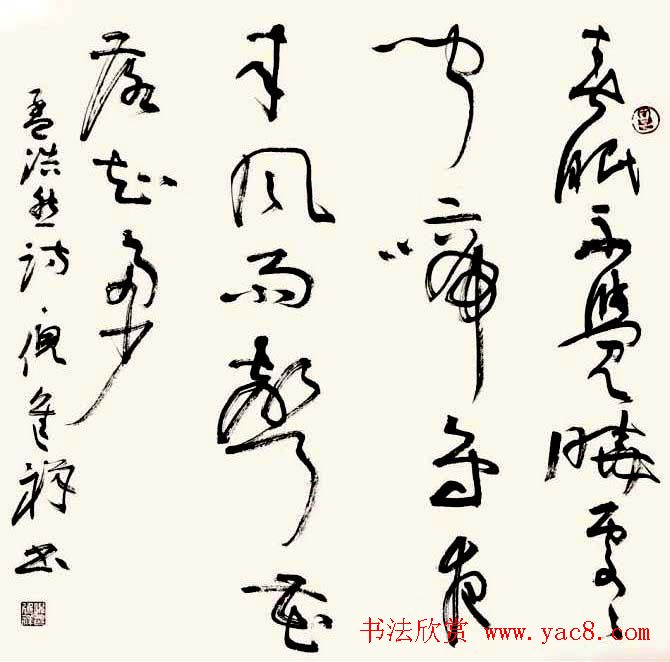 春眠不覺曉處々
闻啼鸟夜
来风雨聲花
落知多少
孟浩然诗 倪 书
书法欣赏 www.yac8.com